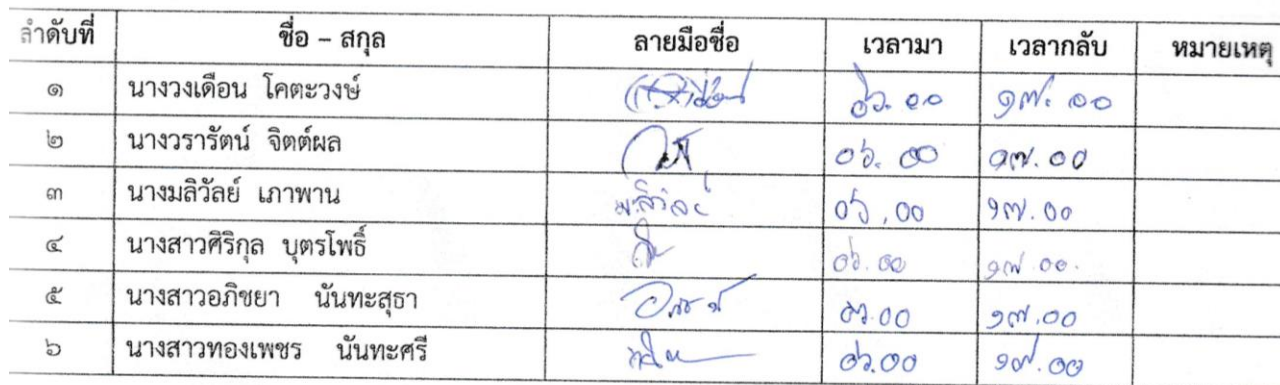 ลำดับที่ ชื่อ – สกุล ลายมือชื่อ เวลามา เวลากลับ หมายเหตุ
๑ นางวงเดือน โคตะวงษ์ ๐๖.๐๐ ๑๗.๐๐
๒ นางวรารัตน์ จิตต์ผล ๐๖.๐๐ ๑๗.๐๐
๓ นางมลิวัลย์ เภาพาน ๐๖.๐๐ ๑๗.๐๐
๔ นางสาวศิริกุล บุตรโพธิ์ ๐๖.๐๐ ๑๗.๐๐.
๕ นางสาวอภิชยา นันทะสุธา ๐๖.๐๐ ๑๗.๐๐
๖ นางสาวทองเพชร นันทะศรี ๐๖.๐๐ ๑๗.๐๐